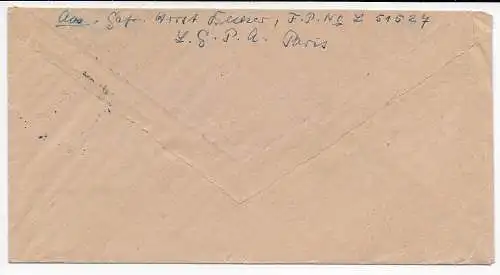 Abs. Gefr. Horst Becker, F.P.No L 51527
L.G.P.A. Paris